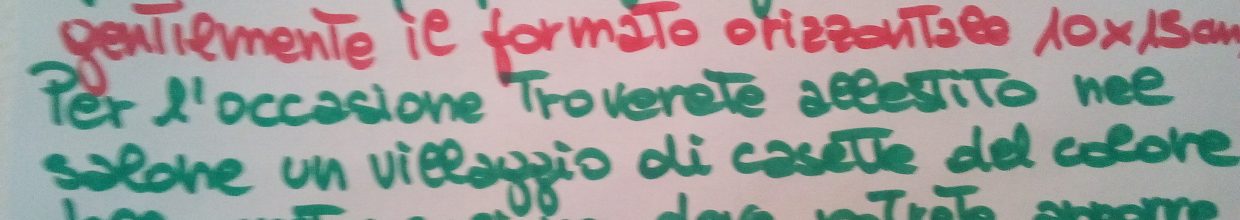 gentilmente il formato orizzontale 10x15cm
Per l'occasione troverete allestito nel
salone un villaggio di casette del colore